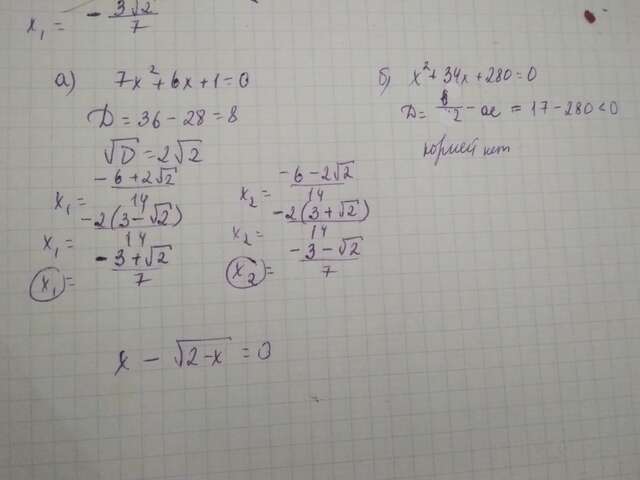 x₁ = -3√2/7
а) 7x² + 6x + 1 = 0
D = 36 - 28 = 8
√D = 2√2
x₁ = (-6 + 2√2)/14
x₁ = -2(3 - √2)/14
x₁ = (-3 + √2)/7
x₂ = (-6 - 2√2)/14
x₂ = -2(3 + √2)/14
x₂ = (-3 - √2)/7
б) x² + 34x + 280 = 0
D = в/2 - ac = 17 - 280 < 0
корней нет
x - √(2-x) = 0